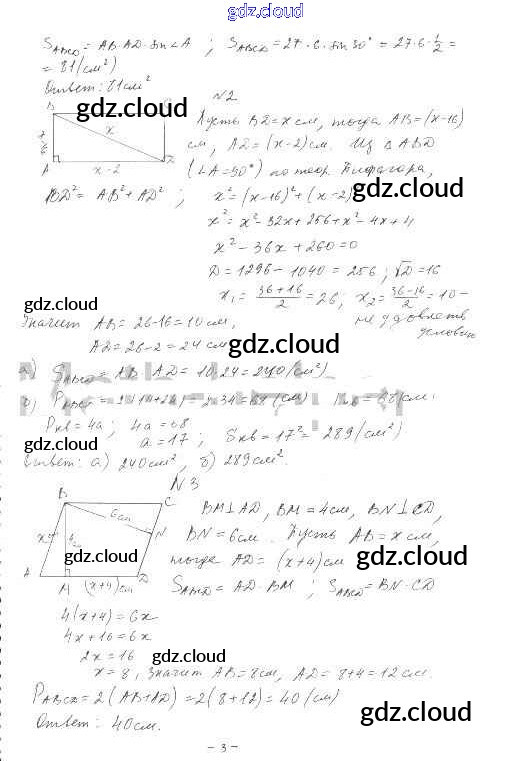 gdz.cloud
S_ABCD = AB·AD·sin∠A ; S_ABCD = 27·6·sin30° = 27·6·1/2 =
= 81 (см²)
Ответ: 81см²
gdz.cloud
N2
B
x
A
x-2
Пусть BD = x см, тогда AB = (x-16)
см, AD = (x-2) см. Из △ABD
(∠A=90°) по теор. Пифагора,
gdz.cloud
BD² = AB² + AD² ; x² = (x-16)² + (x-2)
x² = x² - 32x + 256 + x² - 4x + 4
x² - 36x + 260 = 0
D = 1296 - 1040 = 256 ; √D = 16
x₁ = (36+16)/2 = 26 ; x₂ = (36-16)/2 = 10 -
не удовлетв
условию
gdz.cloud
Значит AB = 26-16 = 10 см,
AD = 26-2 = 24 см
gdz.cloud
а) S_ABCD = AB·AD = 10·24 = 240 (см²)
б)
P кв = 4a ; 4a = 68
a = 17 ; S кв = 17² = 289 (см²)
gdz.cloud
gdz.cloud
Ответ: а) 240см², б) 289см².
N3
B
C
6см
N
x
A
M
(x+4) см
D
BM⊥AD, BM = 4см, BN⊥CD,
BN = 6см. Пусть AB = x см,
тогда AD = (x+4) см
gdz.cloud
gdz.cloud
S_ABCD = AD·BM ; S_ABCD = BN·CD
4(x+4) = 6x
4x + 16 = 6x
2x = 16
gdz.cloud
x = 8, значит AB = 8см, AD = 8+4 = 12см.
P_ABCD = 2(AB+AD) = 2(8+12) = 40 (см)
Ответ: 40см.
gdz.cloud
- 3 -